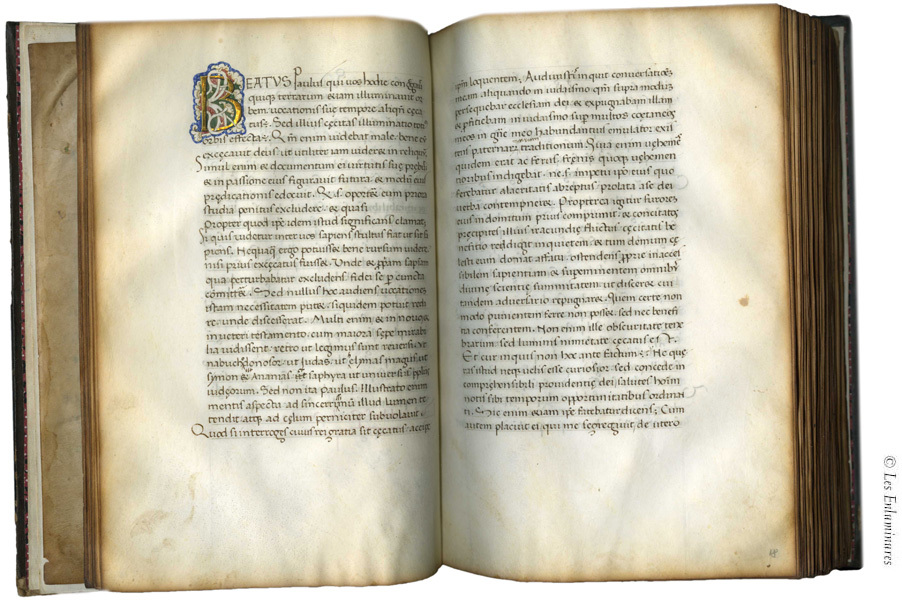 BEATVS Paulus qui vos hodie
quiq; terrarum etiam illuminavit or
bem: vocationis sue tempore
Sed illius illuminatio
orbis Qm enim videbat male: bene
excecavit deus: ut utiliter iam videre
Simul enim & documentum ei virtutis sue
& in passione eius figuravit futura: & modum eius
predicationis edocuit. Et cum priora
studia penitus excludere: & quasi
Propter quod idem istud significans clamat:
Si quis videtur inter vos sapiens stultus fiat ut sit sa
piens. ergo potuisse bene rursum videre
nisi prius excecatus fuisset. Unde &
qua perturbabatur excludens: fidei se cuncta
Sed nullus hoc audiens vocationem
istam necessitatem siquidem
re: unde discesserat. Multi enim & in novo &
in veteri testamento: cum maiora sepe mirabi
lia vidissent: retro ut legimus sunt reversi: ut
nabuchdonosor: ut Judas: ut elymas magus: ut
symon & Ananias ut saphyra: ut universus
iudeorum. Sed non ita Paulus. Illustrato enim
mentis aspectu: ad illud lumen
tendit: atq; ad celum perniciter subvolavit.
Quod si interroges: cuius rei gratia sit cecatus: accipe
ipm loquentem. inquit conversationem
meam aliquando in iudaismo: qm supra modum
persequebar ecclesiam dei: & expugnabam illam
& proficiebam in iudaismo sup multos coetaneos
meos in meo habundantius emulator exis
tens paternarum traditionum Quia enim vehemens
quidem erat ac ferus: frenis quoq; vehemen
tioribus indigebat: ne impetu
alacritatis abreptus: prolata a se dei
verba contemneret. Propterea igitur furores
eius indomitum prius comprimit: & concitatos
precipites illius iracundie fluctus: cecitatis be
neficio reddidit inquietem: & tum demum ce
lesti eum domat affatu: ostendens inacces
sibilem sapientiam & supereminentem omnibus
divine scientie summitatem ut disceret cui
tandem adversario repugnaret: Quem certe non
modo punientem ferre non posset: sed nec benefi
tia conferentem. Non enim ille obscuritate tene
brarum: sed luminis nimietate cecatus
Et cur inquit non hoc ante factum e? Ne que
ras istud neq; velis esse curiosior: sed concede in
comprehensibili providentie dei: salutes hoim
notis sibi temporum oportunitatibus ordinari
Sic enim & iam ipse fatebatur dicens: Cum
autem placuit ei qui me segregavit de utero
© Les Enluminures